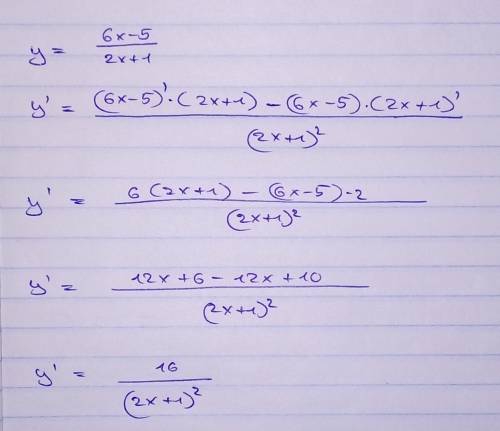 y = (6x-5)/(2x+1)
y' = ((6x-5)'·(2x+1) - (6x-5)·(2x+1)')/(2x+1)²
y' = (6(2x+1) - (6x-5)·2)/(2x+1)²
y' = (12x+6-12x+10)/(2x+1)²
y' = 16/(2x+1)²